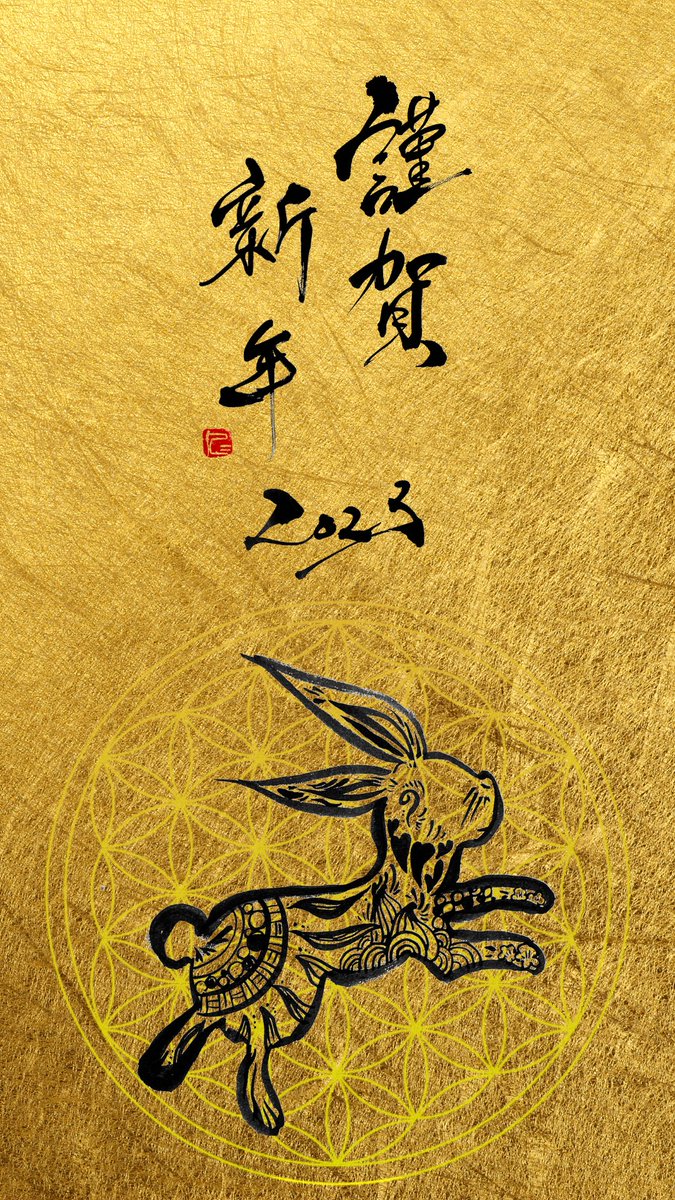 謹賀
新年
2023